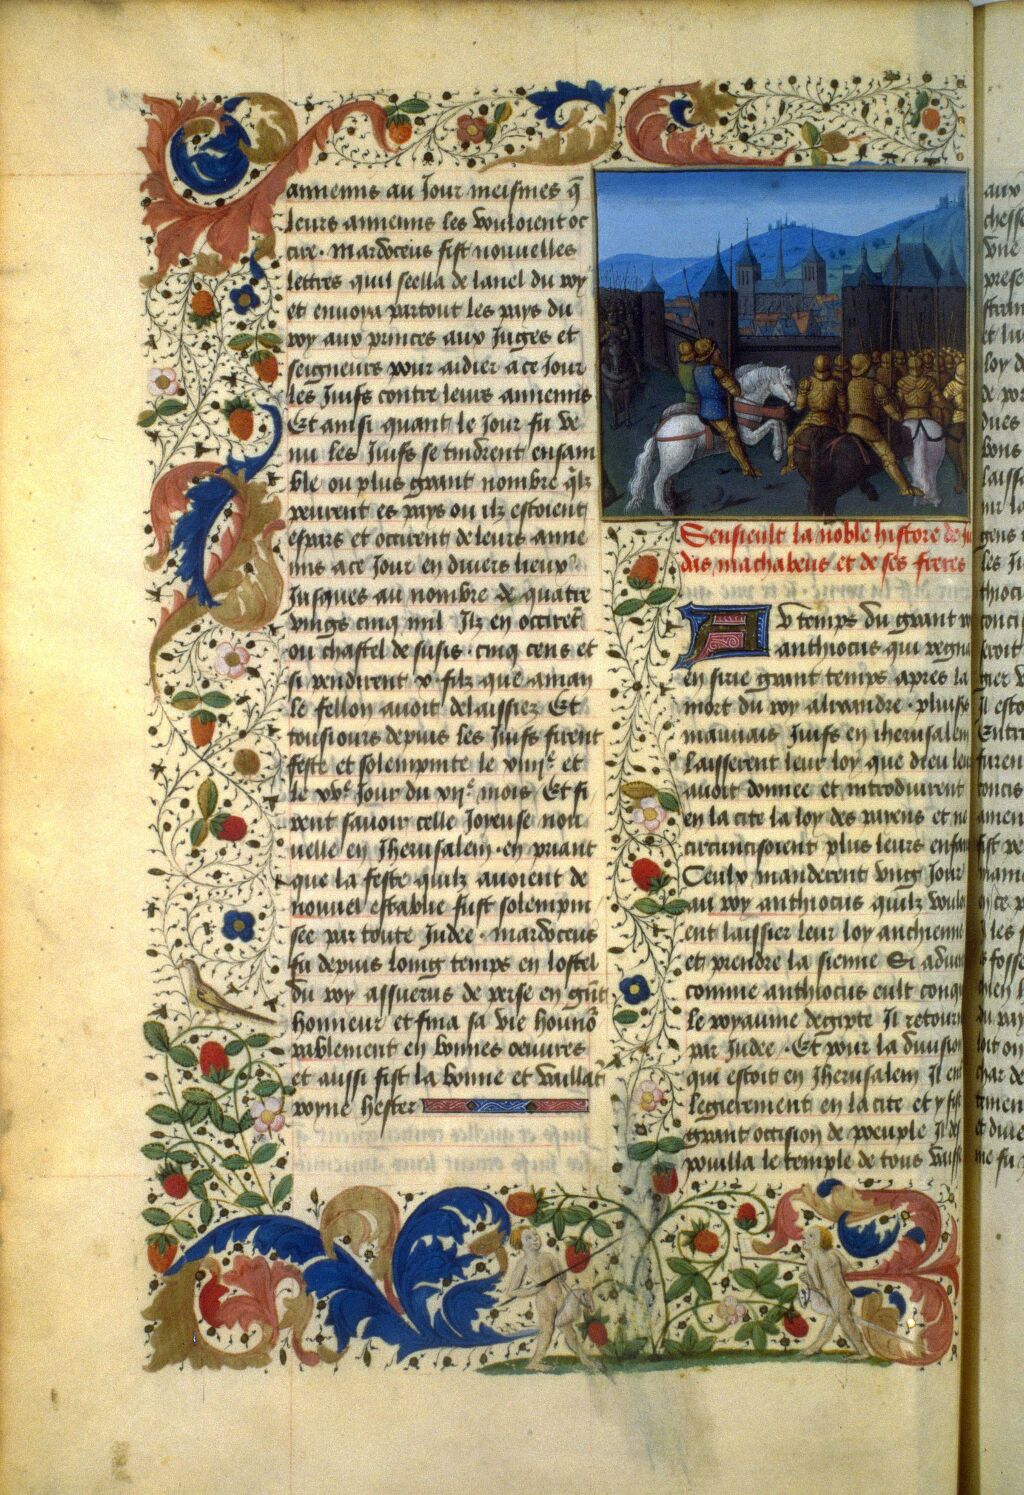 annemis au Jour meismes q̃
leurs annemis les vouloient oc
cire. Mardoceus fist nouvelles
lettres quil seella de lanel du roy
et envoya partout les pays du
roy aux princes aux Juges et
seigneurs pour aidier a ce Jour
les Juifs contre leurs annemis
Et ainsi quant le Jour fu ve
nu les Juifs se tindrent ensam
ble ou plus grant nombre q̃lz
peurent es pays ou ilz estoient
espars et occirent de leurs anne
mis a ce Jour en divers lieux
Jusques au nombre de quatre
vings cinq mil Ilz en occirẽt
ou chastel de susis. cinq cens et
si pendirent x. filz que aman
le fellon avoit delaissiez Et
tousiours depuis les Juifs firent
feste et solempnite le xiiijᵉ et
le xvᵉ Jour du xijᵉ mois Et fi
rent savoir celle Joyeuse nou
velle en Jherusalem. en priant
que la feste quilz avoient de
nouvel establie fust solempni
see par toute Judee. Mardoceus
fu depuis loing temps en lostel
du roy assuerus de perse en grãt
honneur et fina sa vie honno
rablement en bonnes oeuvres
et aussi fist la bonne et vaillãt
royne hester
Sensieult la noble histore de Ju
das machabeus et de ses freres
Au temps du grant
anthiocus qui regna
en sirie grant temps apres la
mort du roy alixandre. pluiss
mauvais Juifs en iherusalem
laisserent leur loy que dieu leur
avoit donnee et introduirent
en la cite la loy des paiens et ne
circuncisoient plus leurs enfans
Ceulx manderent ung Jour
au roy anthiocus quilz vouloi
ent laissier leur loy anchienne
et prendre la sienne Si advint
comme anthiocus eult conquis
le royaume degipte Il retourna
par Judee. Et pour la division
qui estoit en Jherusalem Il en
legierement en la cite et y fist
grant occision de poeuple Il des
pouilla le temple de tous